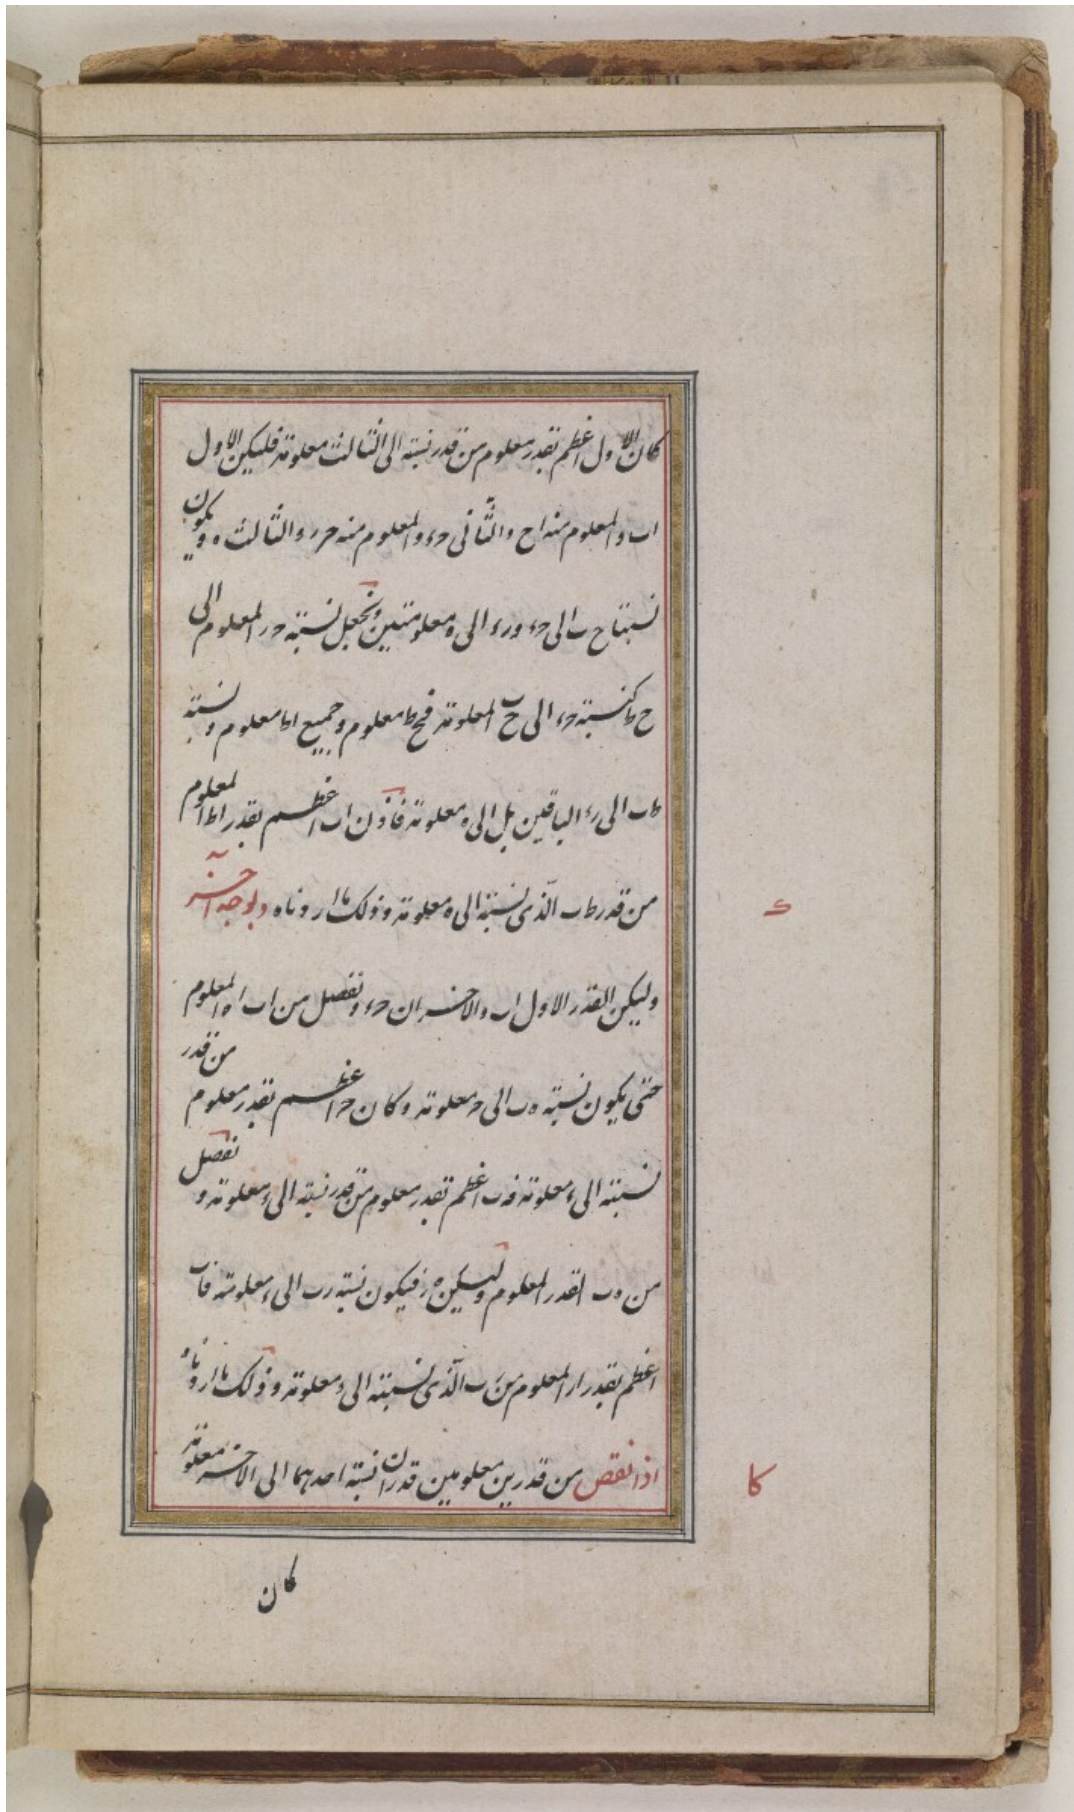 كان الاول اعظم بقدر معلوم من قدر نسبته الى الثالث معلومة فليكن الاول
اب والمعلوم منه اح والثانى حء والمعلوم منه حر والثالث ه ويكون
نسبتا ح ب الى حء ورء الى ه معلومتين ونجعل نسبة حر المعلوم الى
ح ط كنسبة حء الى ح ب المعلومة فح ط معلوم وجميع اط معلوم ونسبة
ط ب الى رء الباقين بل الى ه معلومة فاذن اب اعظم بقدر اط المعلوم
من قدر ط ب الذى نسبته الى ه معلومة وذلك ما اردناه وبوجه آخر
ك
وليكن القدر الاول اب والاخران حء ونفصل من اب اه المعلوم
حتى يكون نسبة ه ب الى ح معلومة وكان ح اعظم بقدر معلوم من قدر
نسبته الى ء معلومة فه ب اعظم بقدر معلوم من قدر نسبته الى ء معلومة ونفصل
من ه ب القدر المعلوم وليكن ه ر فيكون نسبة ر ب الى ء معلومة فاب
اعظم بقدر ار المعلوم من ر ب الذى نسبته الى ء معلومة وذلك ما اردناه
اذا نقص من قدرين معلومين قدران نسبة احدهما الى الاخر معلومة
كا
كان